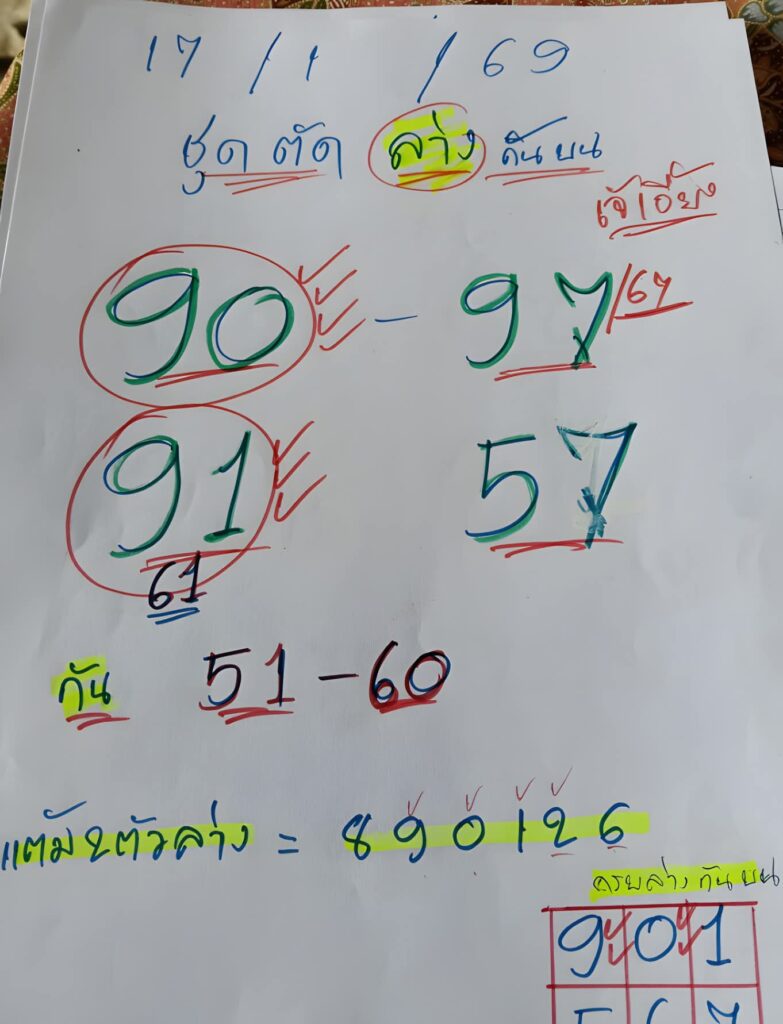 17 / 1 / 69
ชุด ตัด ล่าง กัน บน
เจ๊เอียง
90 - 97/67
91 57
61
กัน 51 - 60
แต้ม 2 ตัวล่าง = 890126
ครบล่าง กัน บน
9 0 1
5 6 7